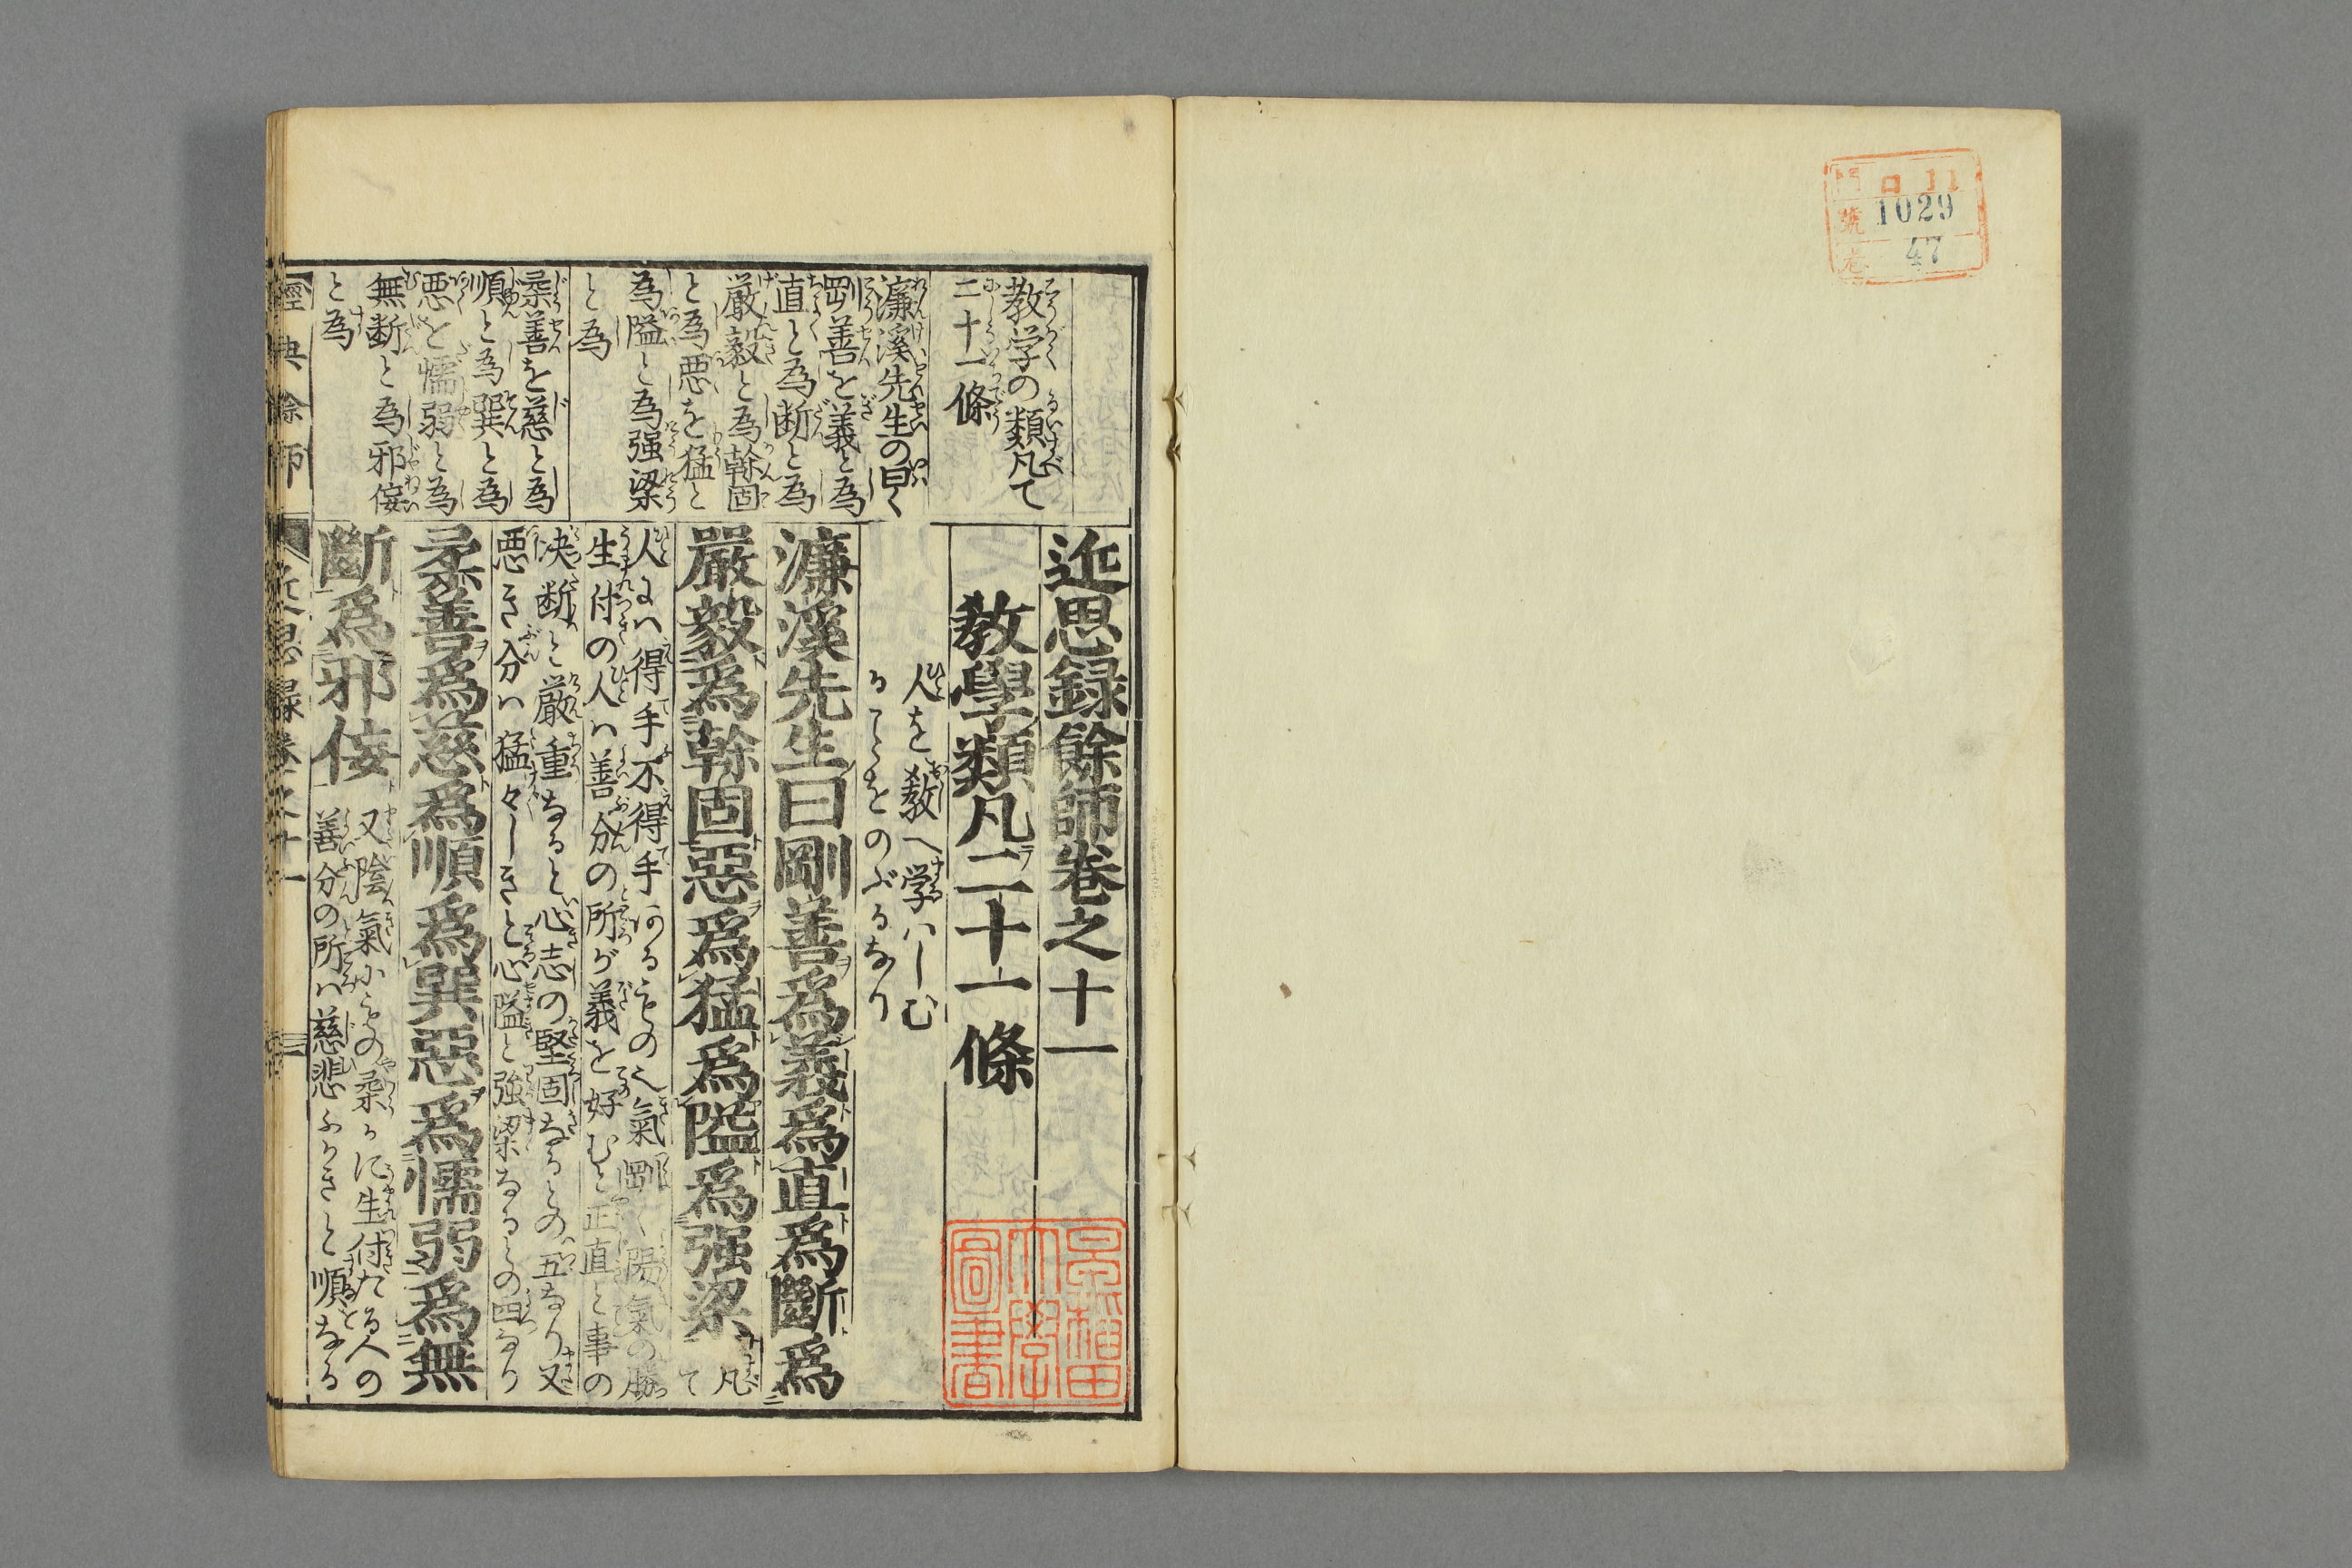 門 ロ 11
號 1029
巻 47
近思録餘師巻之十一
教學類凡二十一條
人を教へ学はしむ
ることをのぶるなり
濂溪先生曰剛善爲義爲直爲斷爲
嚴毅爲幹固惡爲猛爲隘爲强梁
凡て
人には得手不得手あるもの也氣剛く陽氣の勝
生付の人は善分の所が義を好むと正直と事の
决断と厳重なると心志の堅固なるとの五なり又
悪き分は猛々しきと心隘と強梁なるとの四なり
柔善爲慈爲順爲巽惡爲懦弱爲無
斷爲邪佞
又陰氣がちの柔かに生付たる人の
善分の所は慈悲ふかきと順なる
教学の類凡て
二十一條
濂溪先生の曰く
剛善を義と為
直と為断と為
厳毅と為幹固
と為悪を猛と
為隘と為强梁
と為
柔善を慈と為
順と為巽と為
悪を懦弱と為
無断と為邪佞
と為
經典餘師
近思録巻之十一
早稲田
大學
圖書